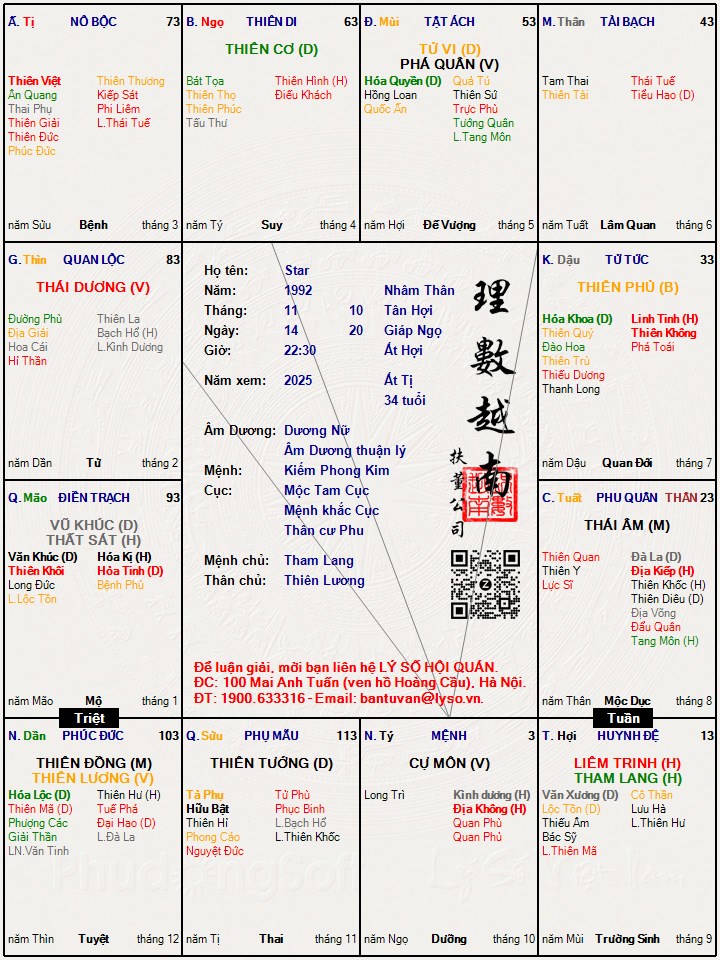 Ấ. Tị NÔ BỘC 73
Thiên Việt Thiên Thương
Ân Quang Kiếp Sát
Thai Phụ Phi Liêm
Thiên Giải L.Thái Tuế
Thiên Đức
Phúc Đức
năm Sửu Bệnh tháng 3
B. Ngọ THIÊN DI 63
THIÊN CƠ (D)
Bát Tọa Thiên Hình (H)
Thiên Thọ Điếu Khách
Thiên Phúc
Tấu Thư
năm Tý Suy tháng 4
Đ. Mùi TẬT ÁCH 53
TỬ VI (D)
PHÁ QUÂN (V)
Hóa Quyền (D) Quả Tú
Hồng Loan Thiên Sứ
Quốc Ấn Trực Phù
Tướng Quân
L.Tang Môn
năm Hợi Đế Vượng tháng 5
M. Thân TÀI BẠCH 43
Tam Thai Thái Tuế
Thiên Tài Tiểu Hao (D)
năm Tuất Lâm Quan tháng 6
G. Thìn QUAN LỘC 83
THÁI DƯƠNG (V)
Đường Phù Thiên La
Địa Giải Bạch Hổ (H)
Hoa Cái L.Kình Dương
Hỉ Thần
năm Dần Tử tháng 2
Họ tên: Star
Năm: 1992 Nhâm Thân
Tháng: 11 10 Tân Hợi
Ngày: 14 20 Giáp Ngọ
Giờ: 22:30 Ất Hợi
Năm xem: 2025 Ất Tị
34 tuổi
Âm Dương: Dương Nữ
Âm Dương thuận lý
Mệnh: Kiếm Phong Kim
Cục: Mộc Tam Cục
Mệnh khắc Cục
Thân cư Phu
Mệnh chủ: Tham Lang
Thân chủ: Thiên Lương
理數越南
扶董公司
Để luận giải, mời bạn liên hệ LÝ SỐ HỘI QUÁN.
ĐC: 100 Mai Anh Tuấn (ven hồ Hoàng Cầu), Hà Nội.
ĐT: 1900.633316 - Email: bantuvan@lyso.vn.
K. Dậu TỬ TỨC 33
THIÊN PHỦ (B)
Hóa Khoa (D) Linh Tinh (H)
Thiên Quý Thiên Không
Đào Hoa Phá Toái
Thiên Trù
Thiếu Dương
Thanh Long
năm Dậu Quan Đới tháng 7
Q. Mão ĐIỀN TRẠCH 93
VŨ KHÚC (D)
THẤT SÁT (H)
Văn Khúc (D) Hóa Kị (H)
Thiên Khôi Hỏa Tinh (D)
Long Đức Bệnh Phù
L.Lộc Tồn
năm Mão Mộ tháng 1
C. Tuất PHU QUÂN THÂN 23
THÁI ÂM (M)
Thiên Quan Đà La (D)
Thiên Y Địa Kiếp (H)
Lực Sĩ Thiên Khốc (H)
Thiên Diêu (D)
Địa Võng
Đẩu Quân
Tang Môn (H)
năm Thân Mộc Dục tháng 8
Triệt
Tuần
N. Dần PHÚC ĐỨC 103
THIÊN ĐỒNG (M)
THIÊN LƯƠNG (V)
Hóa Lộc (D) Thiên Hư (H)
Thiên Mã (D) Tuế Phá
Phượng Các Đại Hao (D)
Giải Thần L.Đà La
LN.Văn Tinh
năm Thìn Tuyệt tháng 12
Q. Sửu PHỤ MẪU 113
THIÊN TƯỚNG (D)
Tả Phụ Tử Phù
Hữu Bật Phục Binh
Thiên Hỉ L.Bạch Hổ
Phong Cáo L.Thiên Khốc
Nguyệt Đức
năm Tị Thai tháng 11
N. Tý MỆNH 3
CỰ MÔN (V)
Long Trì Kình dương (H)
Địa Không (H)
Quan Phù
Quan Phủ
năm Ngọ Dưỡng tháng 10
T. Hợi HUYNH ĐỆ 13
LIÊM TRINH (H)
THAM LANG (H)
Văn Xương (D) Cô Thần
Lộc Tồn (D) Lưu Hà
Thiếu Âm L.Thiên Hư
Bác Sỹ
L.Thiên Mã
năm Mùi Trường Sinh tháng 9